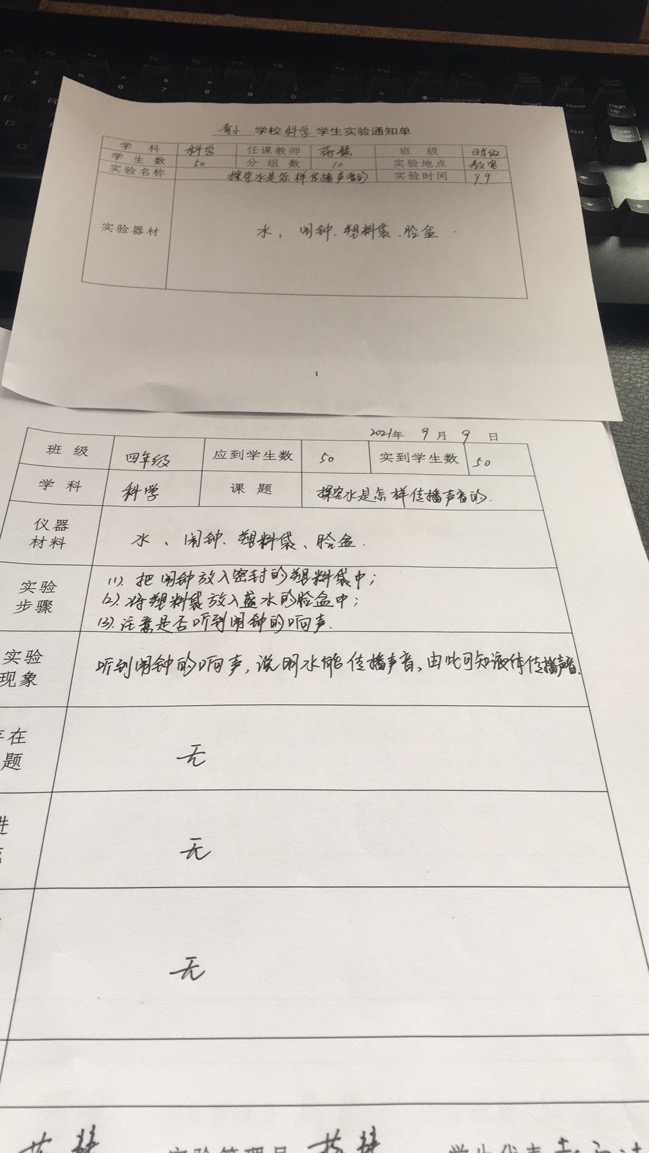 学校 科学 学生实验通知单
学科 科学 任课教师 蒋慧 班级 四年级
学生数 50 分组数 10 实验地点 教室
实验名称 探究水是怎样传播声音的 实验时间 9.9
实验器材 水、闹钟、塑料袋、脸盆
1
2021年 9月 9日
班级 四年级 应到学生数 50 实到学生数 50
学科 科学 课题 探究水是怎样传播声音的.
仪器材料 水、闹钟、塑料袋、脸盆.
实验步骤 (1). 把闹钟放入密封的塑料袋中;
(2). 将塑料袋放入盛水的脸盆中;
(3). 注意是否听到闹钟的响声.
实验现象 听到闹钟的响声,说明水能传播声音,由此可知液体传播声音.
在
题 无
进
无
无
实验管理员 学生代表